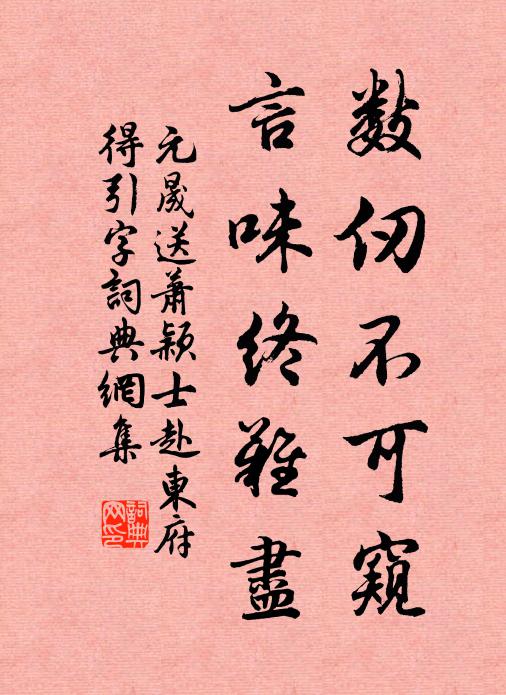 數仞不可窺
言味終難盡
元晟送蕭潁士赴東府
得引字詞典網集
詞典網印